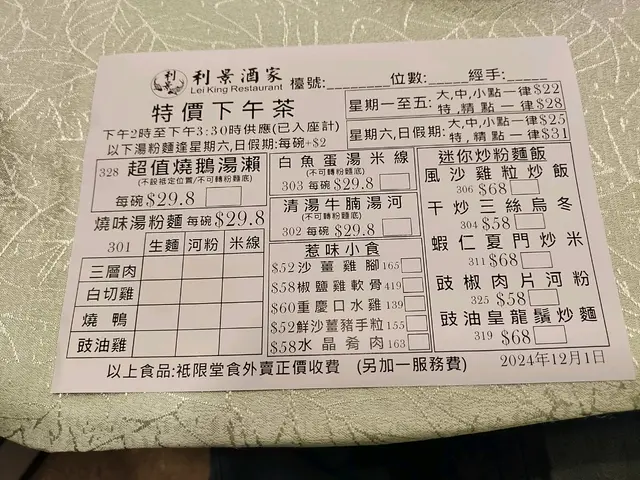 利景
利景酒家
Lei King Restaurant
檯號:________ 位數:_____ 經手:_____
特價下午茶
下午2時至下午3:30時供應(已入座計)
以下湯粉麵逢星期六,日假期:每碗+$2
星期一至五: 大,中,小點一律$22
特,精點一律$28
星期六,日假期: 大,中,小點一律$25
特,精點一律$31
328 超值燒鵝湯瀨
(不設祗定位置/不可轉粉麵底)
每碗$29.8
燒味湯粉麵 每碗$29.8
301 生麵 河粉 米線
三層肉
白切雞
燒鴨
豉油雞
白魚蛋湯米線
(不可轉粉麵底)
303 每碗$29.8
清湯牛腩湯河
(不可轉粉麵底)
302 每碗$29.8
惹味小食
$52沙薑雞腳165
$58椒鹽雞軟骨419
$60重慶口水雞139
$52鮮沙薑豬手粒155
$58水晶肴肉163
迷你炒粉麵飯
風沙雞粒炒飯
306 $68
干炒三絲烏冬
304 $58
蝦仁夏門炒米
311 $68
豉椒肉片河粉
325 $58
豉油皇龍鬚炒麵
319 $68
以上食品:祗限堂食外賣正價收費 (另加一服務費) 2024年12月1日